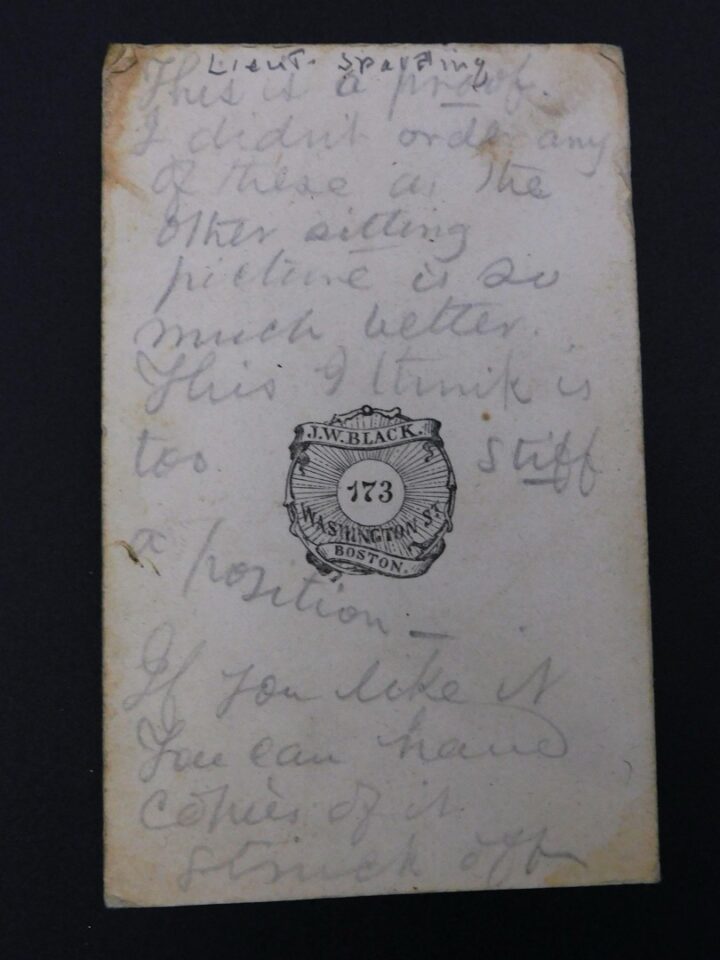 Lieut. Spaulding
This is a proof.
I didn't order any
of these as the
other sitting
picture is so
much better.
This I think is
too stiff
J.W. BLACK.
173
WASHINGTON ST.
BOSTON.
a position —
If you like it
You can have
copies of it
struck off